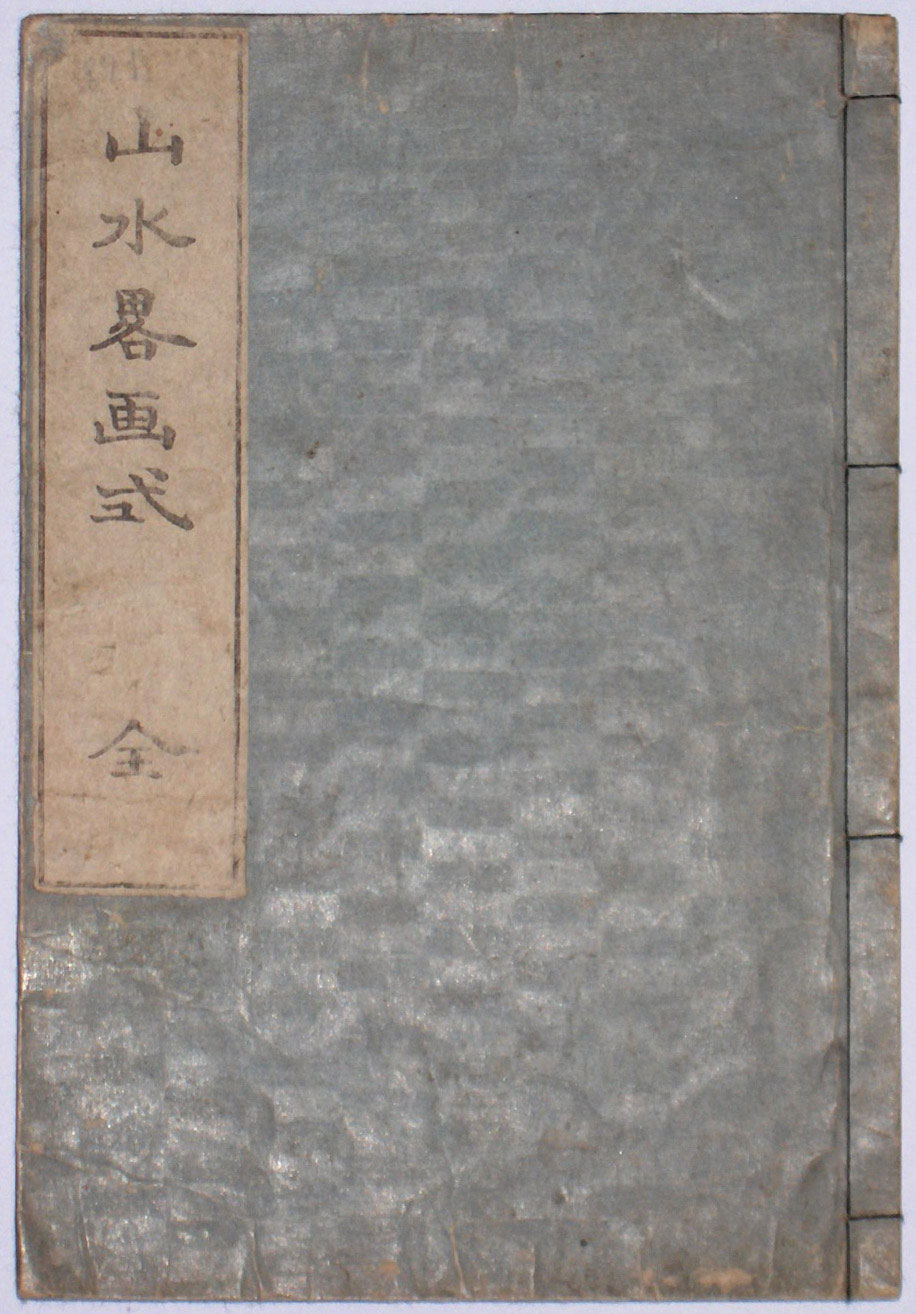 山水畧画式 全